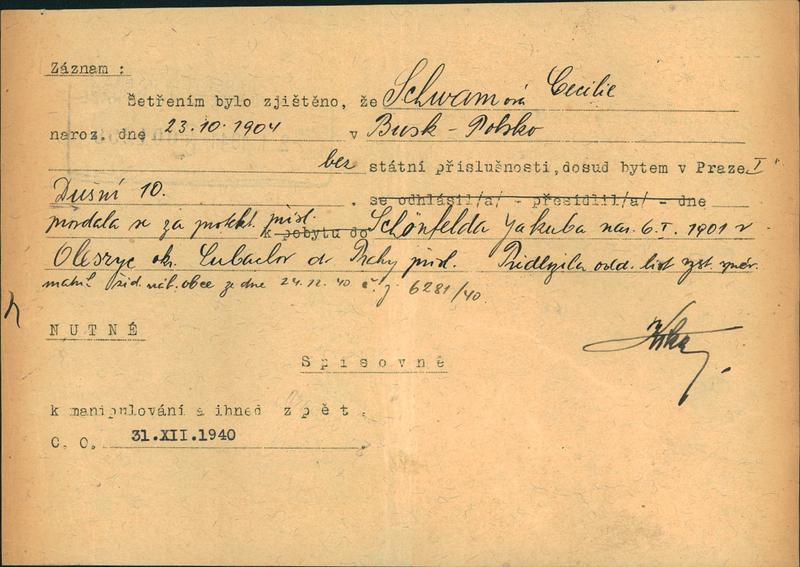 Záznam :
Šetřením bylo zjištěno, že Schwamová Cecilie
naroz. dne 23.10.1904 v Busk - Polsko
bez státní příslušnosti, dosud bytem v Praze I
Dušní 10. . se odhlásil/a/ - přesídlil/a/ - dne
provdala se za protekt. přísl. k pobytu do Schönfelda Jakuba nar. 6.I. 1901 v
Oleszyc okr. Lubaclov do Prahy přísl. Předložila odd. list vyst.
matrik. žid. náb. obce ze dne 24.12.40 č.j. 6281/40.
NUTNÉ
Spisovně
k manipulování a ihned zpět.
C. O. 31.XII.1940